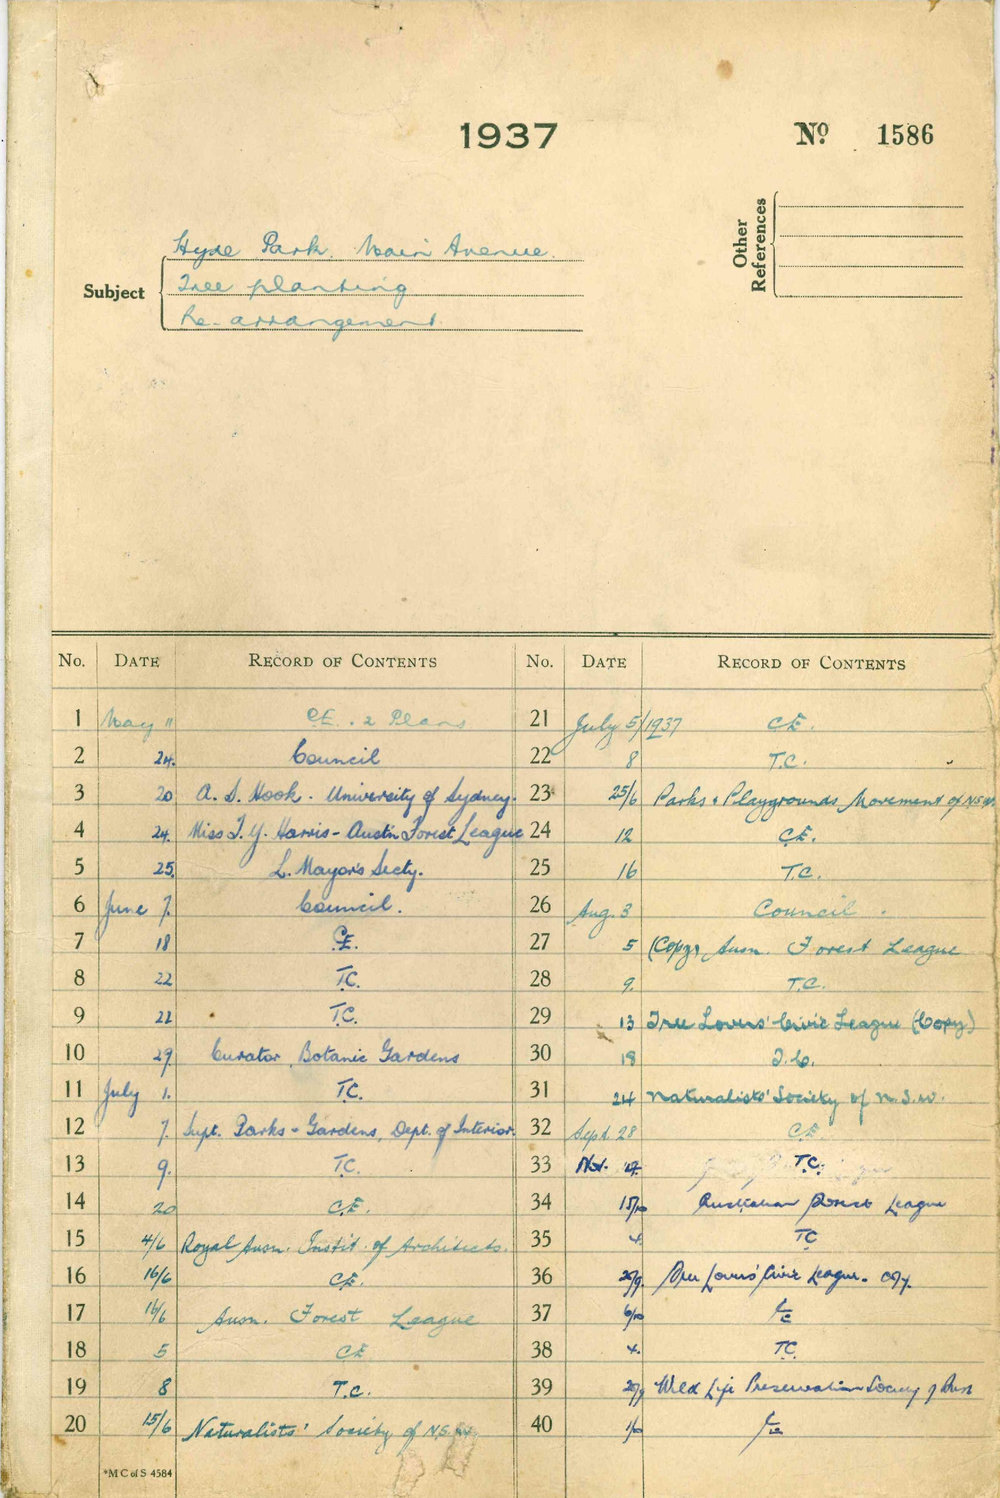 1937
No 1586
Other References
Subject
Hyde Park. Main Avenue.
Tree planting
Re-arrangement.
No. DATE RECORD OF CONTENTS
1 May 11 C.E. . 2 Plans
2 24. Council
3 20 A. S. Hook - University of Sydney.
4 24. Miss T. Y. Harris - Austn Forest League
5 25. L. Mayor's Secty.
6 June 7. Council.
7 18 C.E.
8 22 T.C.
9 22 T.C.
10 29. Curator, Botanic Gardens
11 July 1. T.C.
12 7. Supt. Parks - Gardens, Dept. of Interior.
13 9. T.C.
14 20 C.E.
15 4/6 Royal Ausn. Instit. of Architects.
16 16/6 C.E.
17 16/6 Ausn. Forest League
18 5 C.E
19 8 T.C.
20 15/6 Naturalists' Society of N.S.W.
*M C of S 4584
No. DATE RECORD OF CONTENTS
21 July 5/1937 C.E.
22 8 T.C.
23 25/6 Parks & Playgrounds Movement of N.S.W.
24 12 C.E.
25 16 T.C.
26 Aug. 3 Council
27 5 (Copy) Ausn. Forest League
28 9. T.C.
29 13 Tree Lovers' Civic League (Copy)
30 18 T.C.
31 24 Naturalists' Society of N.S.W.
32 Sept. 28 C.E
33 T.C.
34 15/10 Australian Forest League
35 4. TC
36 Tree Lovers' Civic League. Cpy.
37 6/10 CE
38 4. TC.
39 Wild Life Preservation Society of Aust
40 CE